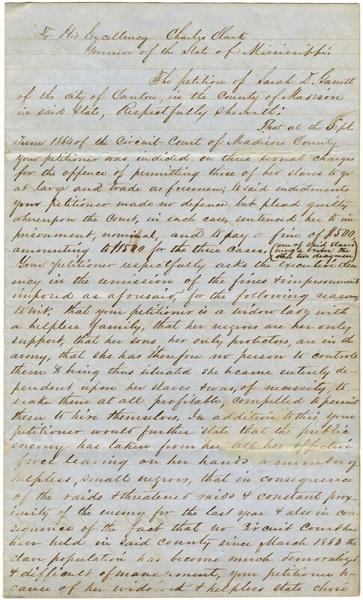 To His Excellency Charles Clark
Governor of the State of Mississippi
The petition of Sarah D. Garrett
of the city of Canton, in the County of Madison
in said State, Respectfully sheweth;
That at the Sept.
Term 1864 of the Circuit Court of Madison County
your petitioner was indicted on three several charges
for the offence of permitting three of her slaves to go
at large and trade as freemen; to said indictments
your petitioner made no defence but plead guilty
whereupon the Court, in each case, sentenced her to im-
prisonment, nominal, and to pay a fine of $500,
amounting to $1500 for the three cases, (one of said slaves being a & the other two draymen)
Your petitioner respectfully asks the Executive clem-
ency in the remission of the fines & imprisonment
imposed as aforesaid, for the following reasons
to wit, that your petitioner is a widow lady with
a helpless family, that her negroes are her only
support, that her sons her only protectors, are in the
army, that she has therefore no person to control
them & being thus situated she became entirely de-
pendent upon her slaves & was, of necessity, to
make them at all profitable, compelled to permit
them to hire themselves, In addition to this your
petitioner would further state that the public
enemy has taken from her all her effective
force leaving on her hands a number of
helpless, small negroes, that in consequence
of the raids & threatened raids & constant prox-
imity of the enemy for the last year & also in con-
sequence of the fact that no Circuit Court has
been held in said county since March 1863 the
slave population has become much demoralized
& difficult of management, your petitioner be-
cause of her widowed & helpless state chose